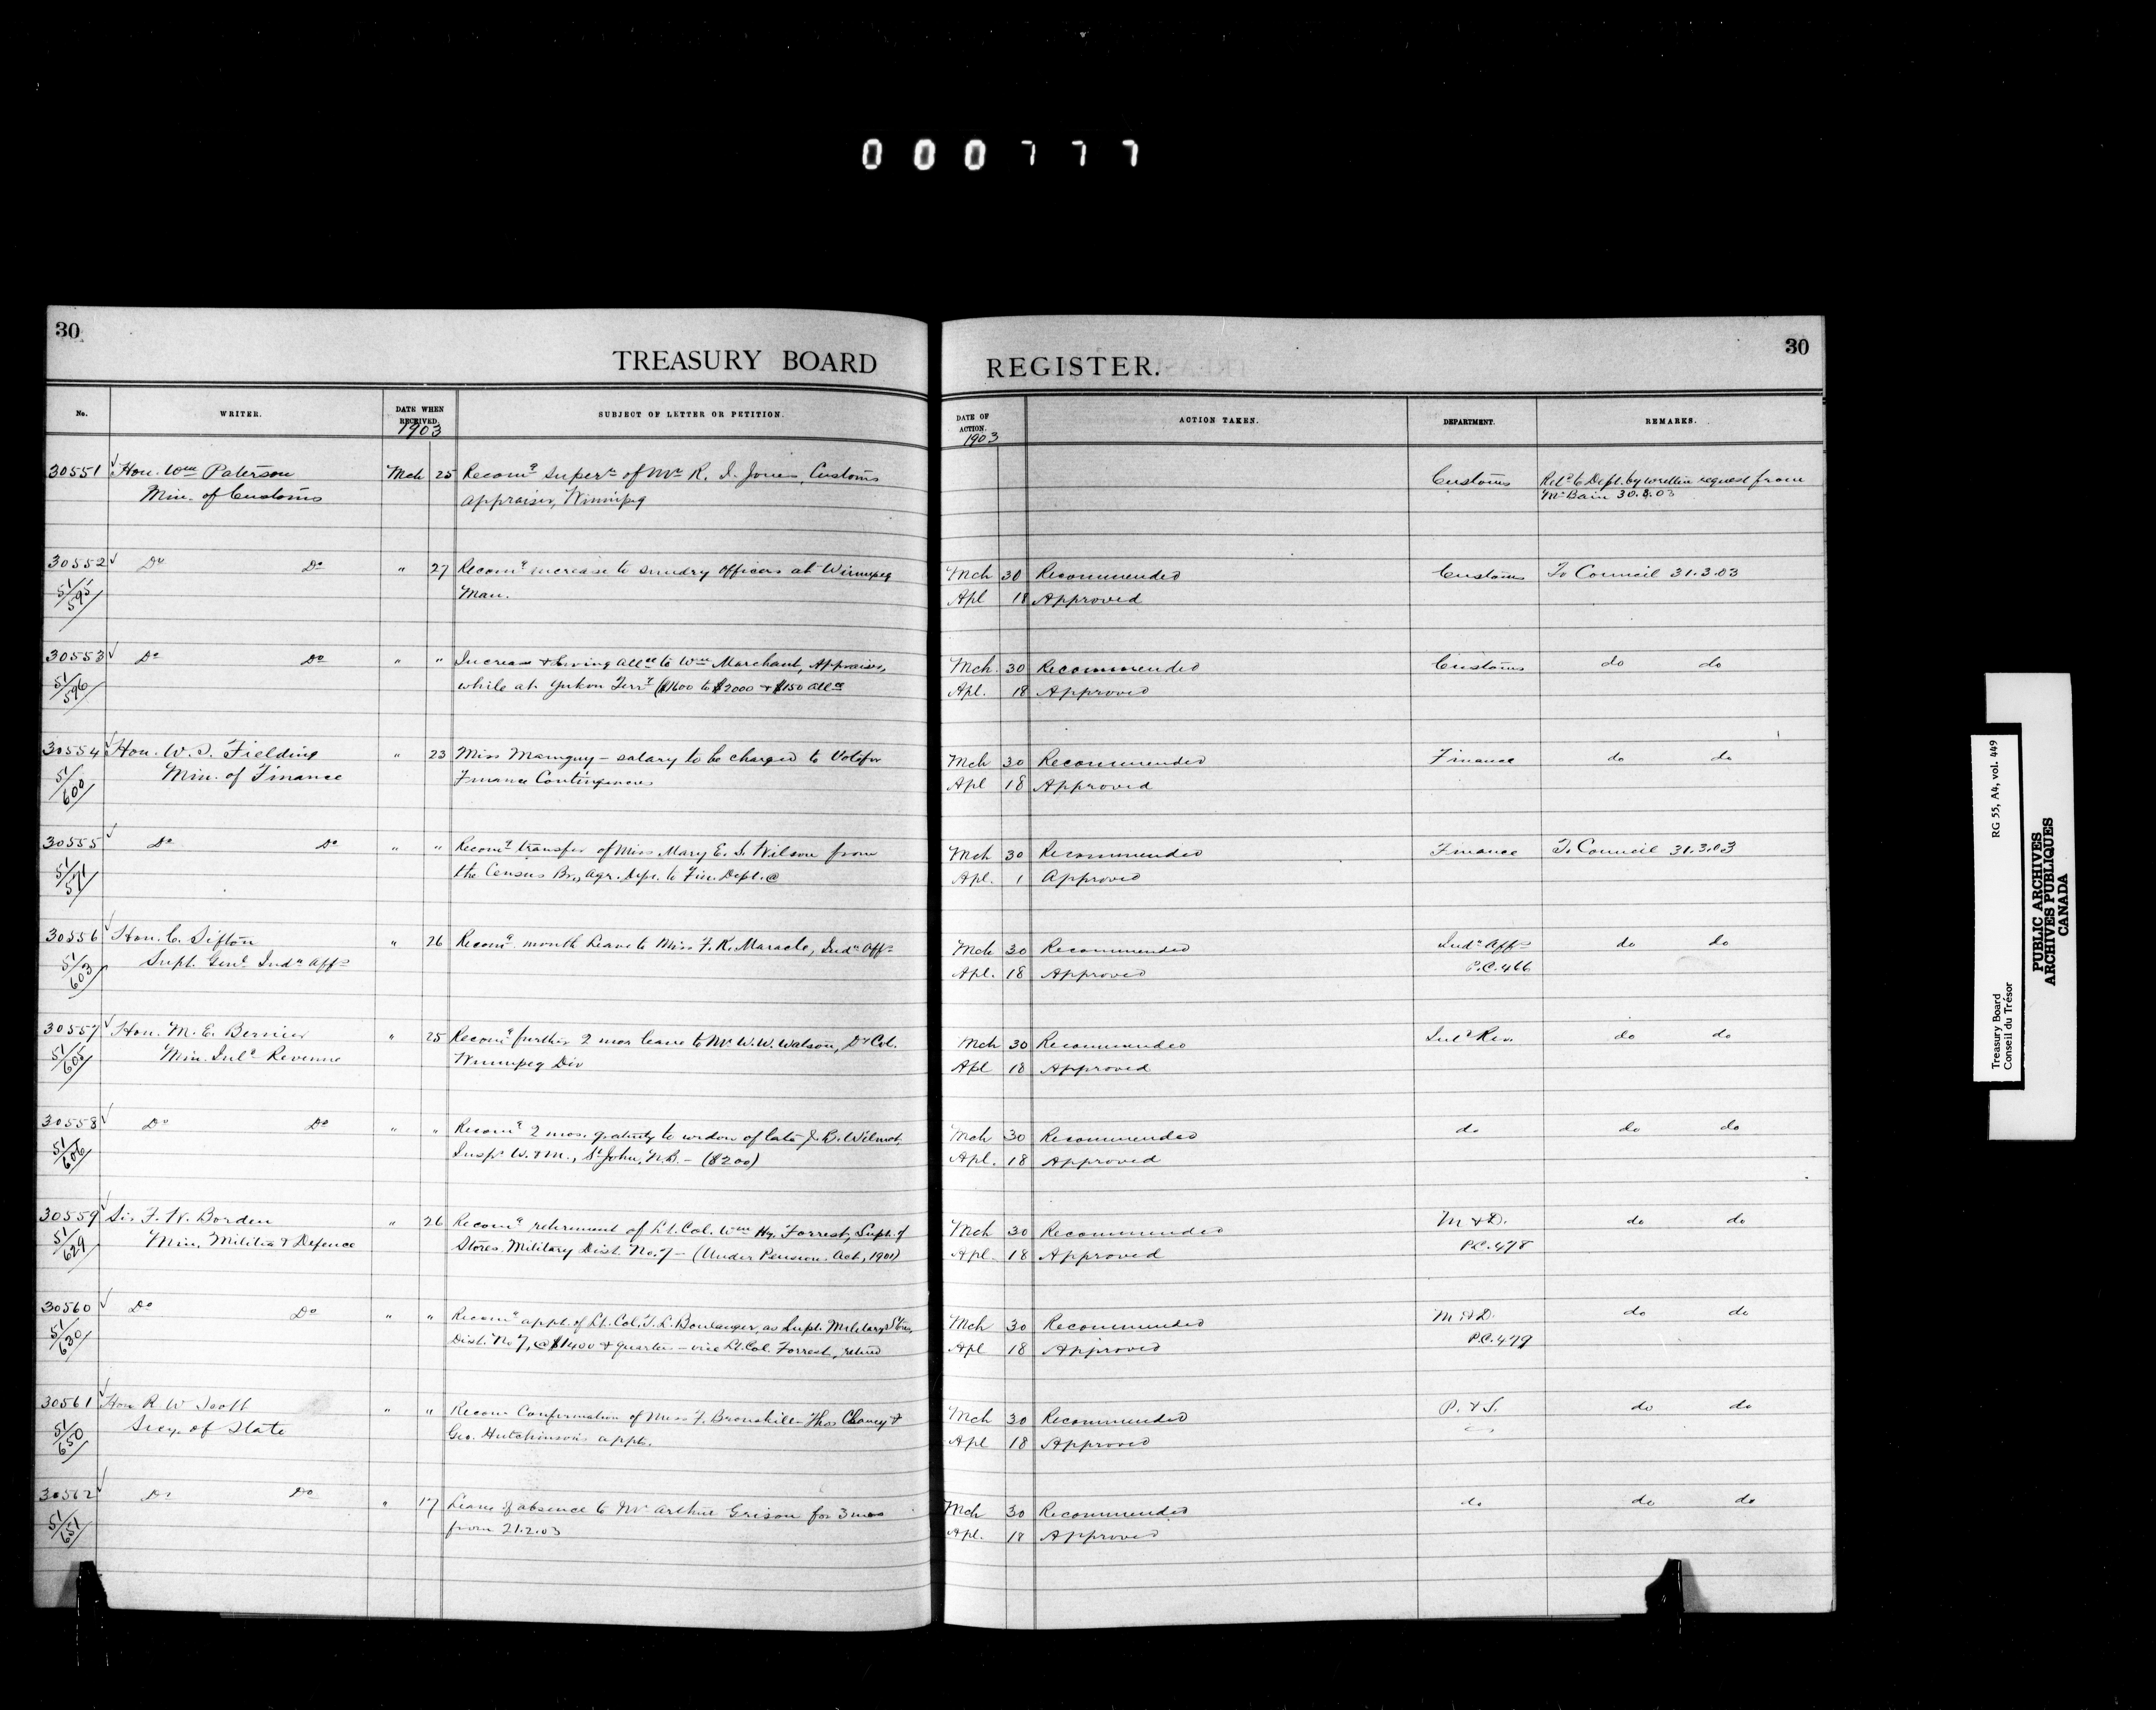 000777
30
TREASURY BOARD
REGISTER.
30
No.
WRITER.
DATE WHEN RECEIVED.
1903
SUBJECT OF LETTER OR PETITION.
DATE OF ACTION.
1903
ACTION TAKEN.
DEPARTMENT.
REMARKS.
30551 Hon. Wm Paterson Mch 25 Recomg Supern of Mr R. I. Jones, Customs Customs Retd to Dept. by written request from
Min. of Customs Appraiser, Winnipeg Mr Bain 30.3.03
30552 Do Do " 27 Recomg increase to sundry officers at Winnipeg Mch 30 Recommended Customs To Council 31.3.03
51/595 Man. Apl 18 Approved
30553 Do Do " " Increase & living allce to Wm Marchant, Appraiser, Mch. 30 Recommended Customs do do
51/596 while at Yukon Terry ($1600 to $2000 & $150 allce Apl. 18 Approved
30554 Hon. W. S. Fielding " 23 Miss - salary to be charged to Vote for Mch 30 Recommended Finance do do
51/600 Min. of Finance Finance Contingencies Apl 18 Approved
30555 Do Do " " Recomg transfer of Miss Mary E. S. Wilson from Mch 30 Recommended Finance To Council 31.3.03
51/571 the Census Br., Agr. Dept. to Fin. Dept. @ Apl. 1 Approved
30556 Hon. C. Sifton " 26 Recomg month leave to Miss F. K. Maracle, Indn Affs Mch 30 Recommended Indn Affs do do
51/603 Supt. Genl Indn Affs Apl. 18 Approved P.C. 466
30557 Hon. M. E. Bernier " 25 Recomg further 2 mos leave to Mr W. W. Watson, Dy Col. Mch 30 Recommended Inld Rev. do do
51/605 Min. Inld Revenue Winnipeg Div Apl 18 Approved
30558 Do Do " " Recomg 2 mos. gratuity to widow of late J. B. Wilmot, Mch 30 Recommended do do do
51/606 Inspr W. & M., St John, N.B. - ($200) Apl. 18 Approved
30559 Sir F. W. Borden " 26 Recomg retirement of Lt. Col. Wm Hy. Forrest, Supt. of Mch 30 Recommended M & D. do do
51/629 Min. Militia & Defence Stores, Military Dist. No. 7 - (Under Pension Act, 1901) Apl. 18 Approved P.C. 478
30560 Do Do " " Recomg appt. of Lt. Col. T. L. Boulanger, as Supt. Military Stores, Mch 30 Recommended M & D. do do
51/630 Dist. No 7, @ $1400 & quarters - vice Lt. Col. Forrest, retired Apl 18 Approved P.C. 479
30561 Hon R W Scott " " Recom Confirmation of Miss F. Thos & Mch 30 Recommended P. & S. do do
51/650 Secy. of State Geo. Hutchinson's appts. Apl 18 Approved
30562 Do Do " 17 Leave of absence to Mr Arthur Grison for 3 mos Mch 30 Recommended do do do
51/651 from 21.2.03 Apl. 18 Approved
Treasury Board RG 55, A4, vol. 449
Conseil du Trésor
PUBLIC ARCHIVES
ARCHIVES PUBLIQUES
CANADA